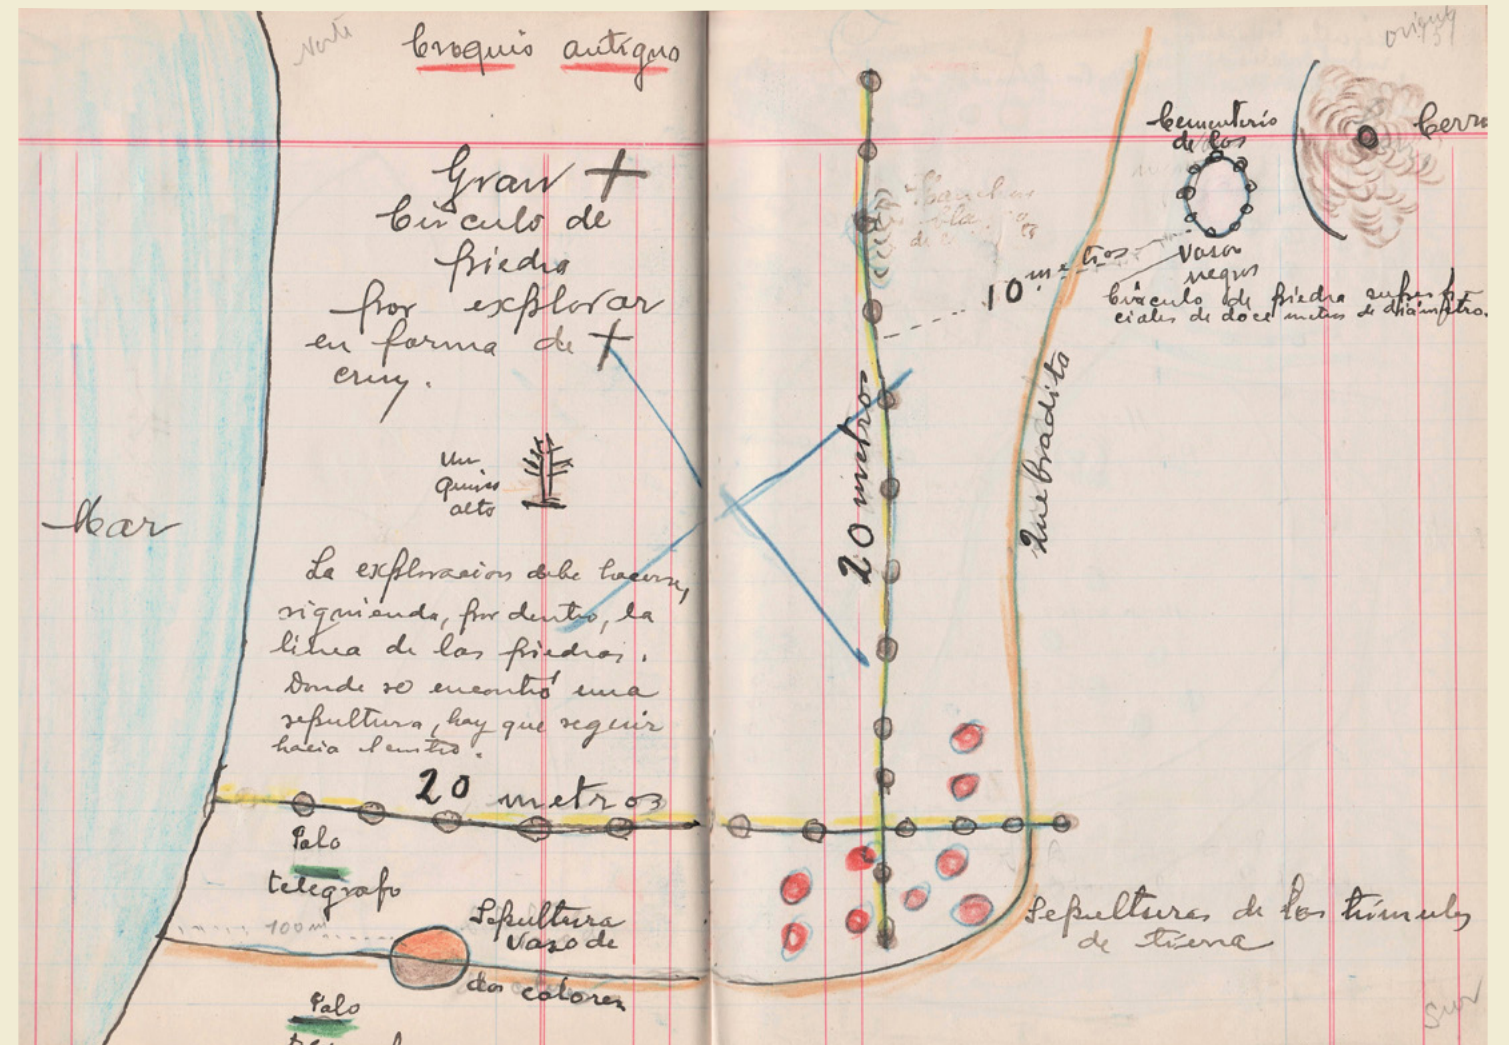 Norte
Croquis antiguo
Gran +
Círculo de
piedra
por explorar
en forma de +
cruz.
Un
quisco
alto
Mar
La exploracion debe hacerse,
siguiendo, por dentro, la
línea de las piedras.
Donde se encontró una
sepultura, hay que seguir
hacia el centro.
20 metros
Palo
telegrafo
100 m
Sepultura
Vaso de
dos colores
Palo
Oriente
Cementerio
de los
Vasos
negros
Cerro
Manchas
10 metros
Círculo de piedra superfi
ciales de doce metros de diámetro.
20 metros
Quebradita
Sepulturas de los túmulos
de tierra
Sur